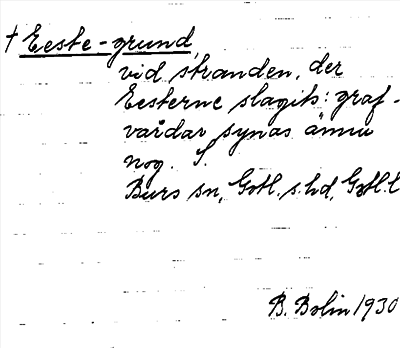 † Eeste-grund,
vid stranden, der
Eesterne slagits: graf-
vårdar synas ännu
nog. S.
Burs sn, Gotl. s. hd, Gotl. l
B. Bolin 1930